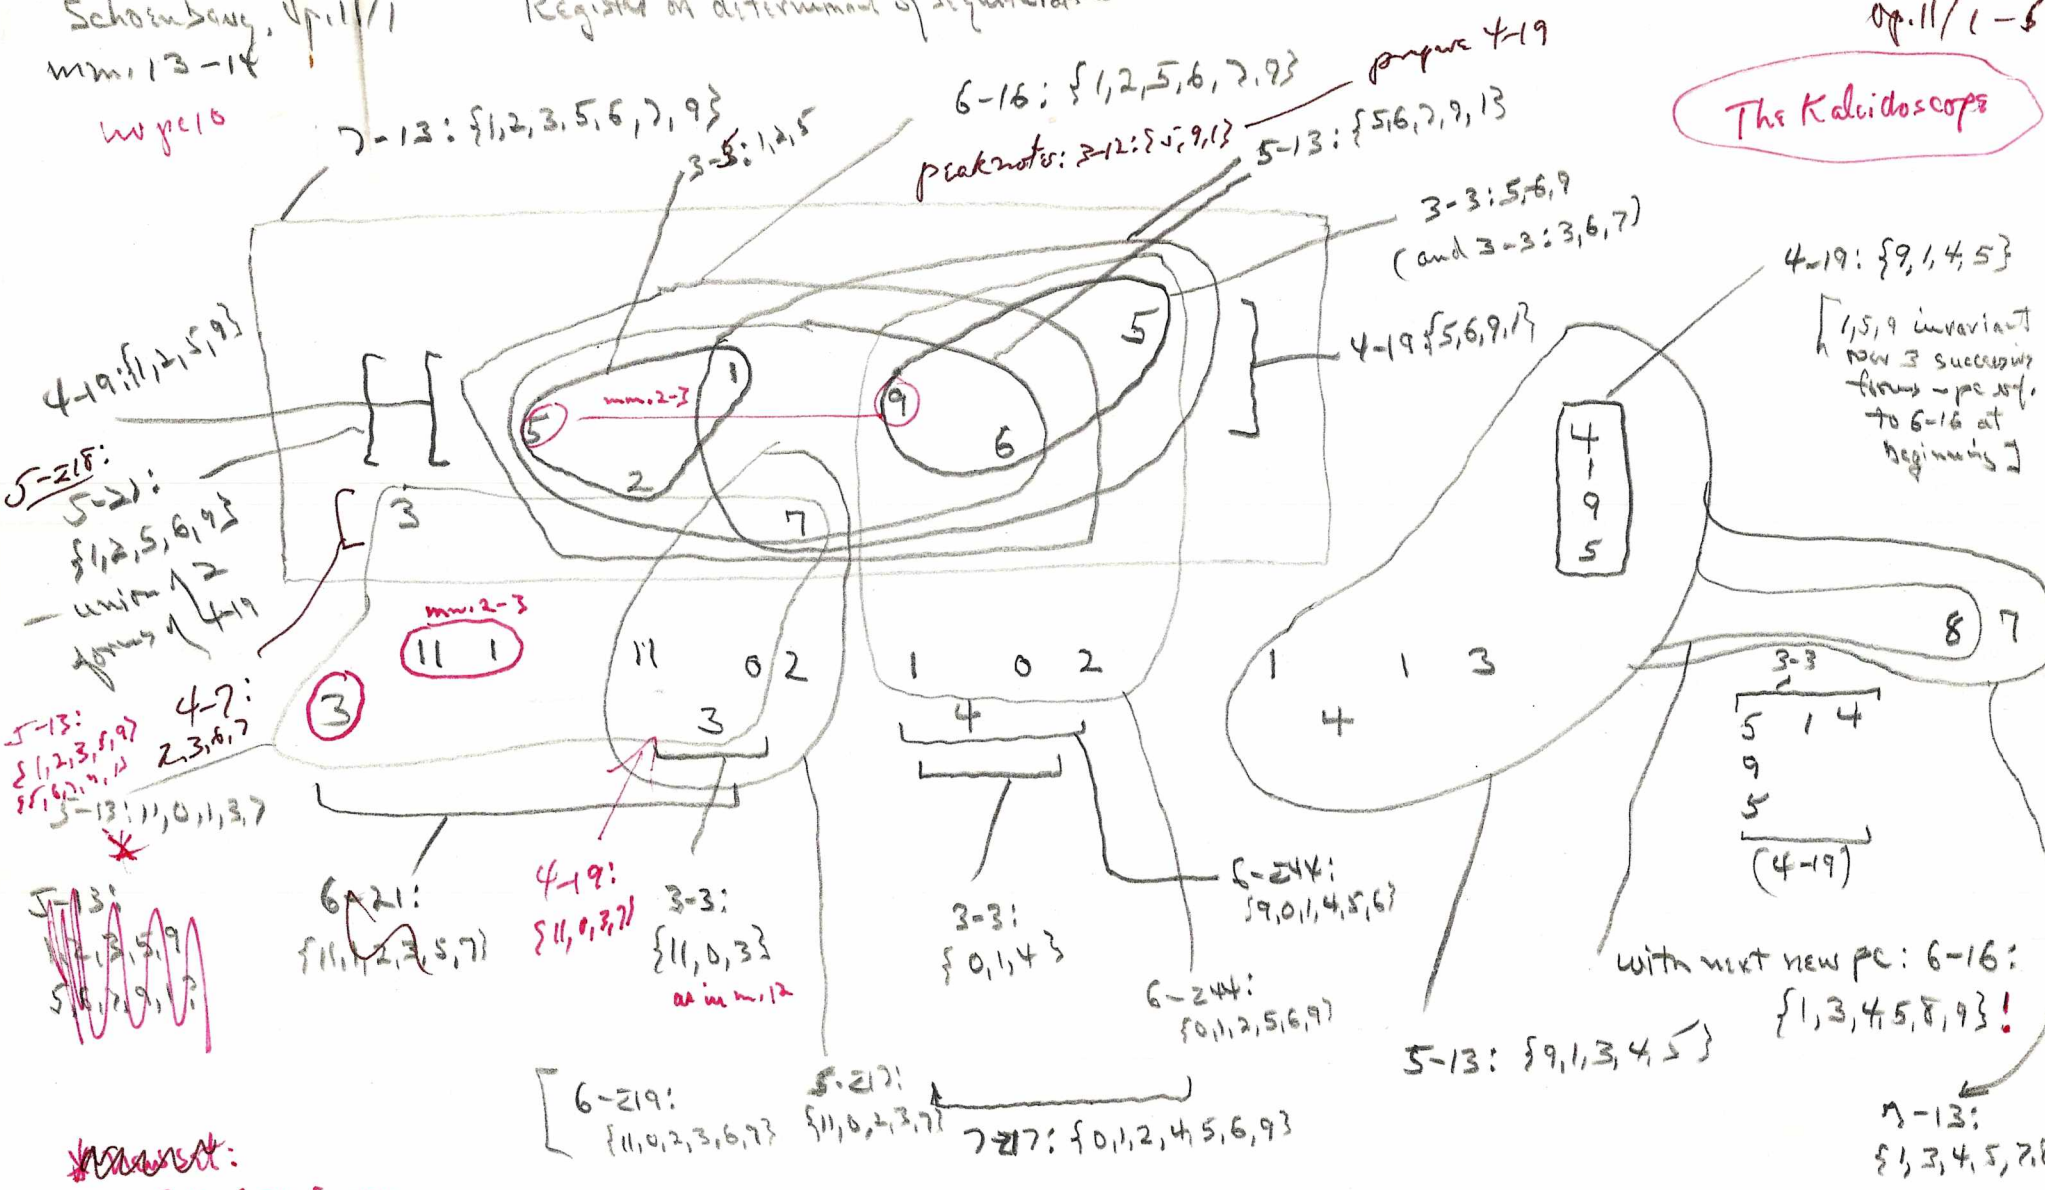 Schoenberg, Op. 11/1
Register as determinant of segments
Op. 11/ 1-5
mm. 13-14
no pc 10
The Kaleidoscope
7-13: {1,2,3,5,6,7,9}
3-3: 1,2,5
6-16: {1,2,5,6,7,9}
prepare 4-19
peak notes: 3-12: {5,9,1}
5-13: {5,6,7,9,1}
3-3: 5,6,9
(and 3-3: 3,6,7)
4-19: {9,1,4,5}
[1,5,9 invariant
over 3 successive
forms - pc ref.
to 6-16 at
beginning]
4-19: {1,2,5,9}
4-19 {5,6,9,1}
5
1
mm. 2-3
9
5
6
2
3
7
4
1
9
5
5-z18:
5-21:
{1,2,5,6,9}
- union of 2
forms of 4-19
mm. 2-3
11 1
3
11
0 2
3
1 0 2
4
1 1 3
4
8 7
3-3
5 1 4
9
5
(4-19)
4-7:
2,3,6,7
5-13:
{1,2,3,5,9}
{5,6,7,9,1}
5-13: 11,0,1,3,7
5-13:
1,2,3,5,9
5,6,7,9,1
6-21:
{11,1,2,3,5,7}
4-19:
{11,0,3,7}
3-3:
{11,0,3}
as in m. 12
3-3:
{0,1,4}
6-z44:
{9,0,1,4,5,6}
6-z44:
{0,1,2,5,6,9}
with next new pc: 6-16:
{1,3,4,5,8,9}!
5-13: {9,1,3,4,5}
6-z19:
{11,0,2,3,6,7}
5-z17:
{11,0,2,3,7}
7-z17: {0,1,2,4,5,6,9}
7-13:
{1,3,4,5,7,8